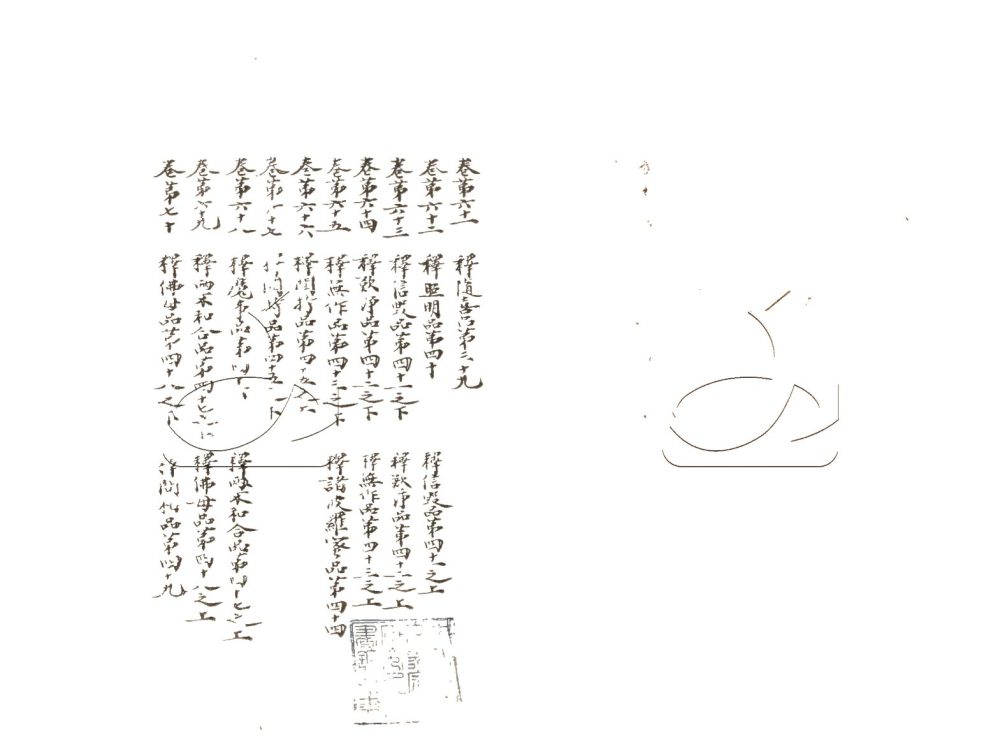 卷第六十一 釋隨喜品第三十九
卷第六十二 釋照明品第四十 釋信毀品第四十一之上
卷第六十三 釋信毀品第四十一之下 釋歎淨品第四十二之上
卷第六十四 釋歎淨品第四十二之下 釋無作品第四十三之上
卷第六十五 釋無作品第四十三之下 釋諸波羅蜜品第四十四
卷第六十六 釋聞持品第四十五之上
卷第六十七 釋聞持品第四十五之下
卷第六十八 釋魔事品第四十六 釋兩不和合品第四十七之上
卷第六十九 釋兩不和合品第四十七之下 釋佛母品第四十八之上
卷第七十 釋佛母品第四十八之下 釋問相品第四十九